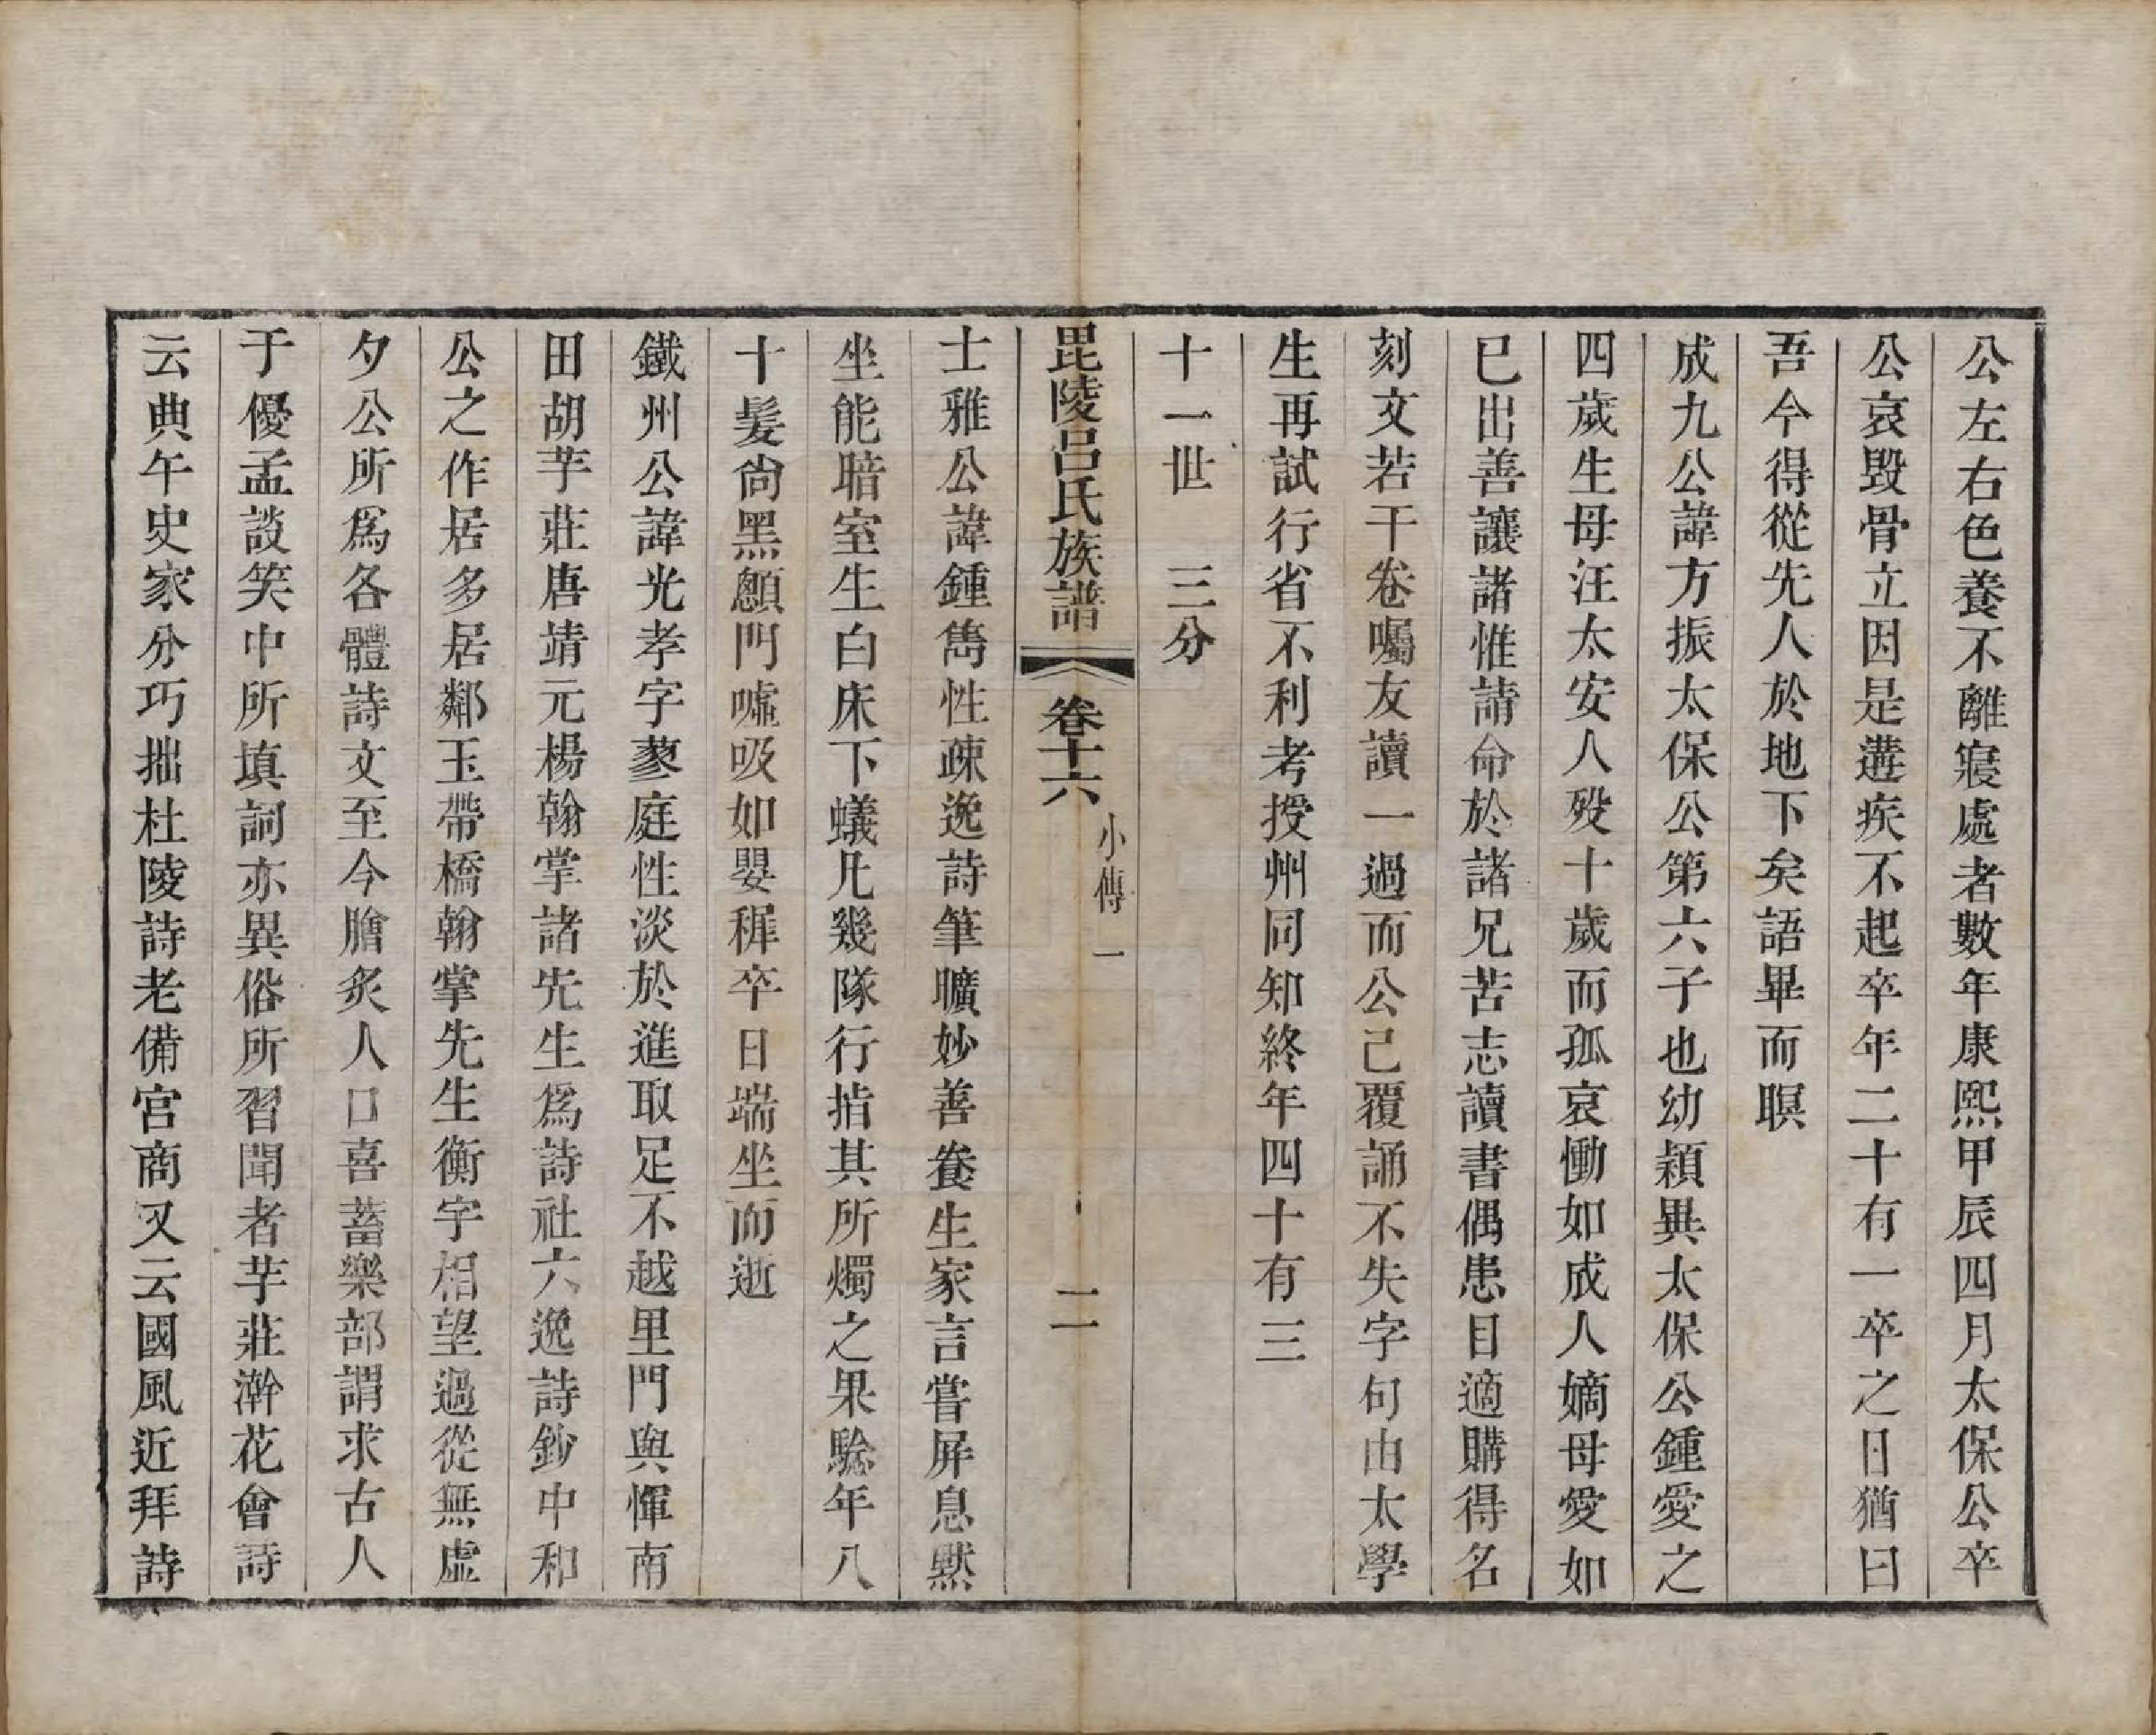 公左右色養不離寢處者數年康熙甲辰四月太保公卒
公哀毀骨立因是遘疾不起卒年二十有一卒之日猶曰
吾今得從先人於地下矣語畢而瞑
成九公諱方振太保公第六子也幼穎異太保公鍾愛之
四歲生母汪太安人歿十歲而孤哀慟如成人嫡母愛如
已出善讓諸惟請命於諸兄苦志讀書偶患目適購得名
刻文若干卷囑友讀一過而公己覆誦不失字句由太學
生再試行省不利考授州同知終年四十有三
十一世　三分
毘陵呂氏族譜　卷十六　小傳一　二
士雅公諱鍾雋性疎逸詩筆曠妙善養生家言嘗屏息默
坐能暗室生白床下蟻凡幾隊行指其所燭之果驗年八
十髮尙黑顖門噓吸如嬰穉卒日端坐而逝
鐵州公諱光孝字蓼庭性淡於進取足不越里門與惲南
田胡芋莊唐靖元楊翰掌諸先生爲詩社六逸詩鈔中和
公之作居多居鄰玉帶橋翰掌先生衡宇相望過從無虛
夕公所爲各體詩文至今膾炙人口喜蓄樂部謂求古人
于優孟談笑中所填詞亦異俗所習聞者芋莊澣花會詩
云典午史家分巧拙杜陵詩老備宮商又云國風近拜詩